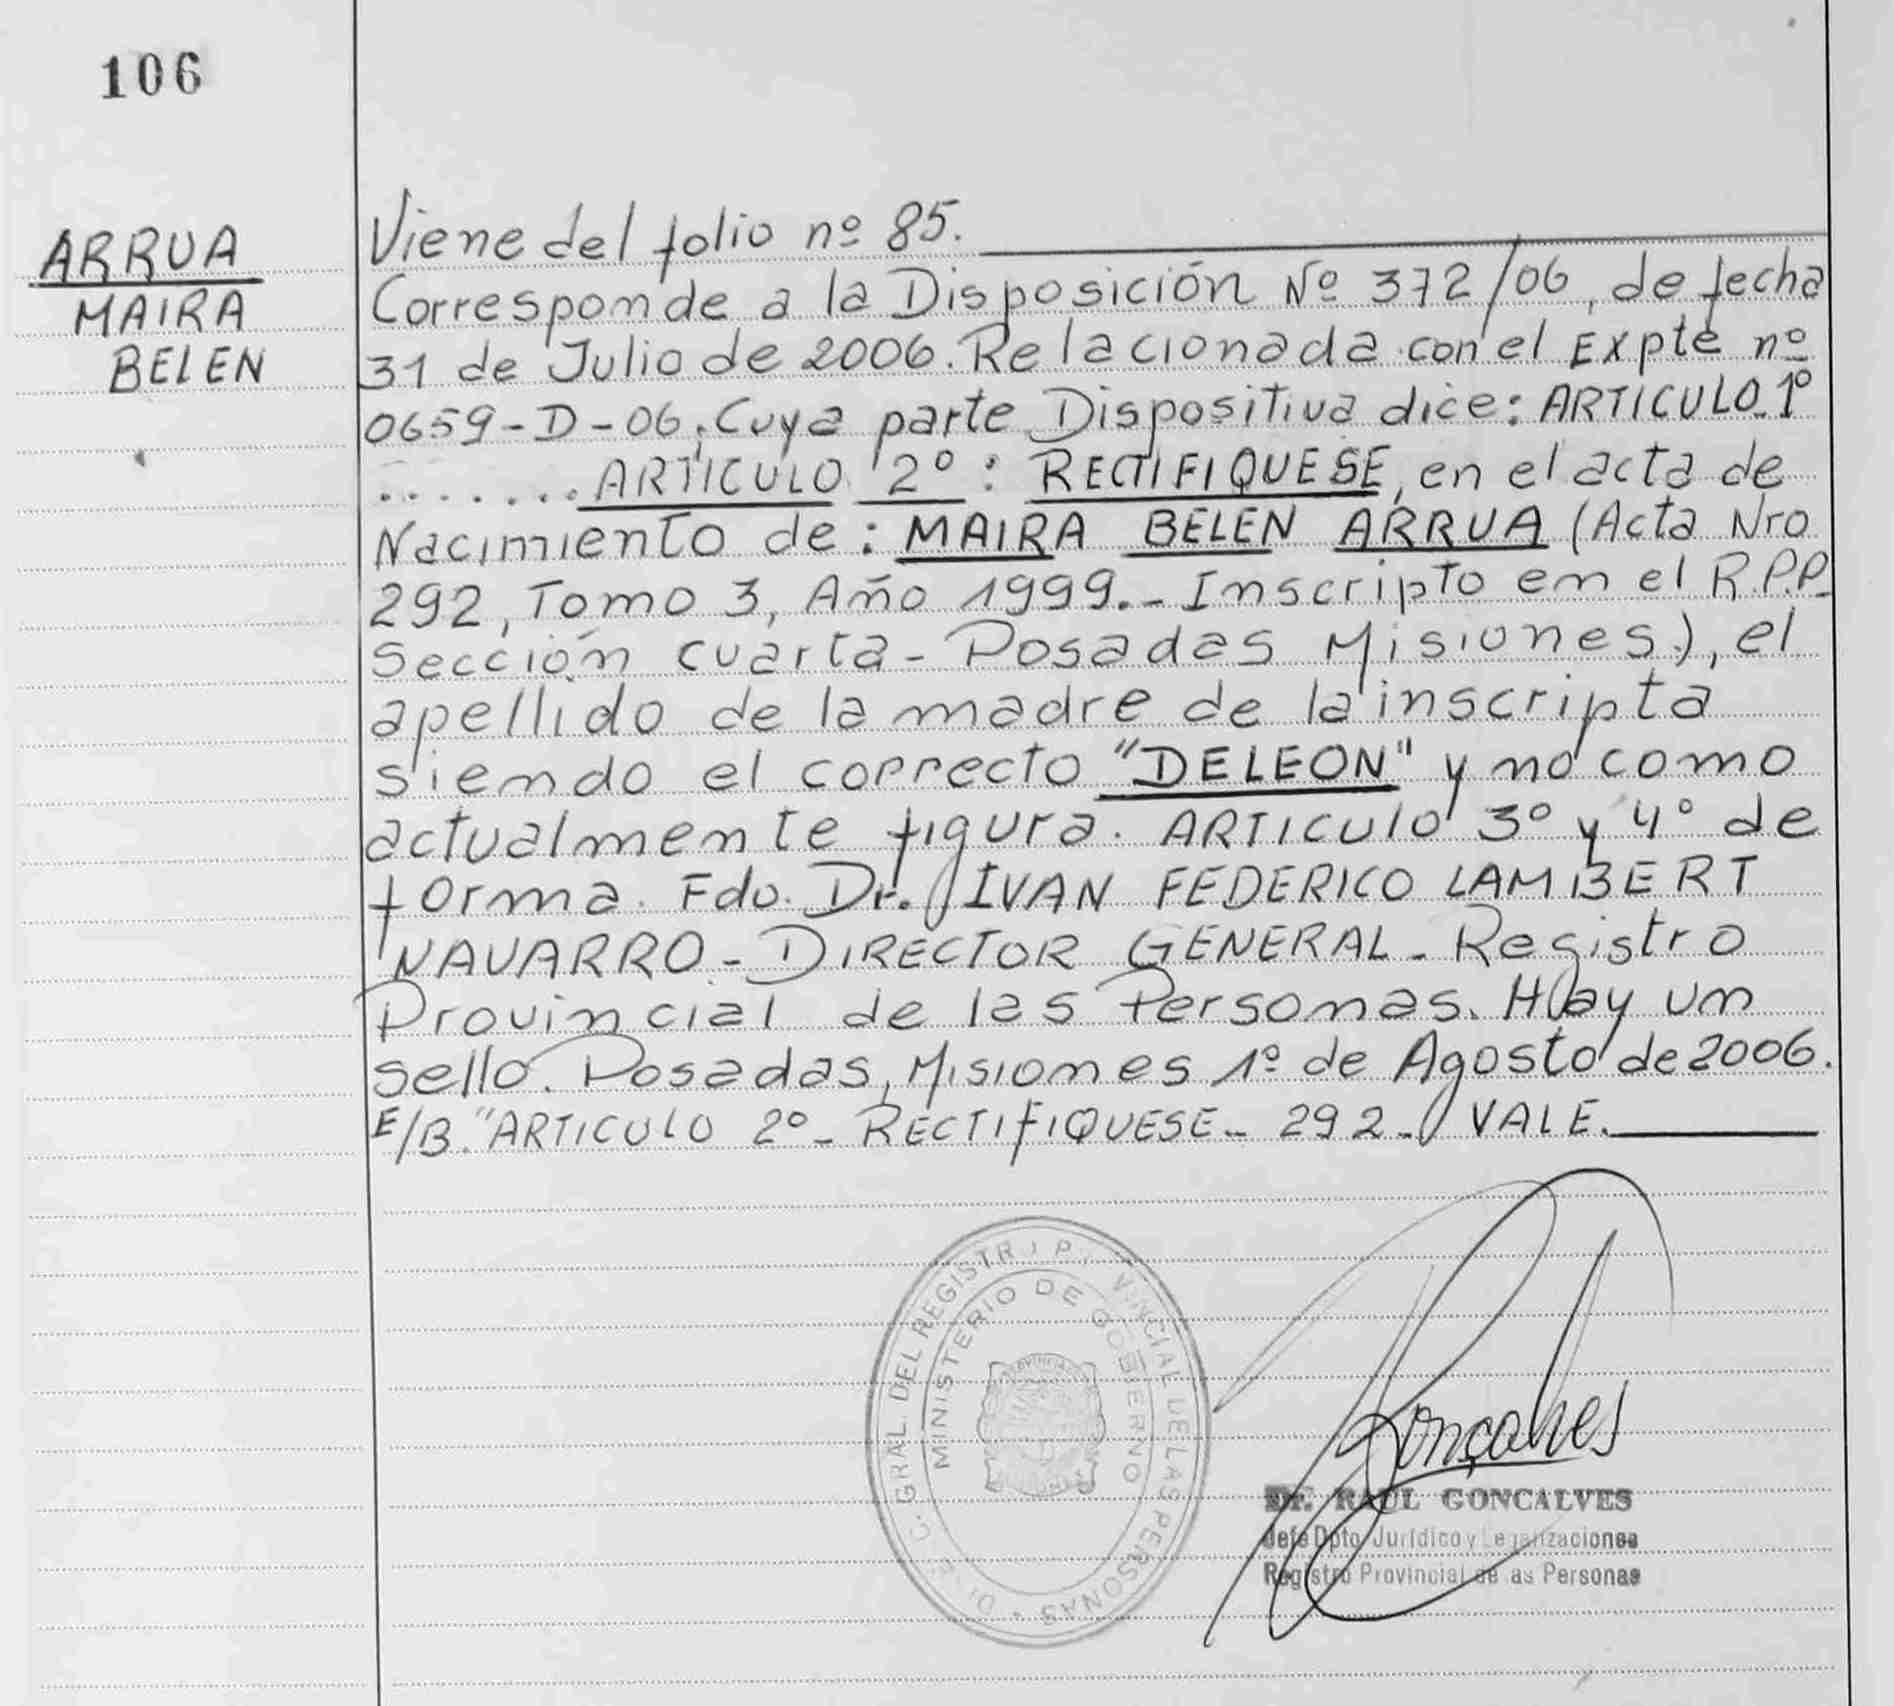 106
ARRUA
MAIRA
BELEN
Viene del folio nº 85.
Corresponde a la Disposición Nº 372/06, de fecha
31 de Julio de 2006. Relacionada con el Expte nº
0659-D-06, Cuya parte Dispositiva dice: ARTICULO 1º
....... ARTICULO 2º: RECTIFIQUESE, en el acta de
Nacimiento de: MAIRA BELEN ARRUA (Acta Nro
292, Tomo 3, Año 1999.- Inscripto en el R.P.P.
Sección cuarta - Posadas Misiones), el
apellido de la madre de la inscripta
siendo el correcto "DELEON" y no como
actualmente figura. ARTICULO 3º y 4º de
forma. Fdo. Dr. IVAN FEDERICO LAMBERT
NAVARRO - DIRECTOR GENERAL - Registro
Provincial de las Personas. Hay un
sello. Posadas, Misiones 1º de Agosto de 2006.
E/B. "ARTICULO 2º - RECTIFIQUESE - 292 - VALE.
GRAL. DEL REGISTR PERSONAS
MINISTERIO DE GOBIERNO
Gonçalves
Dr. RAUL GONCALVES
Jefe Dpto Jurídico y Legalizaciones
Registro Provincial de as Personas